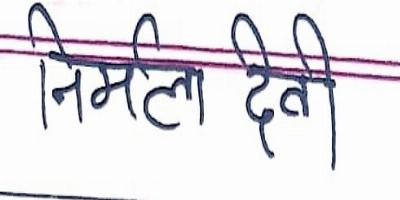 निर्मला देवी